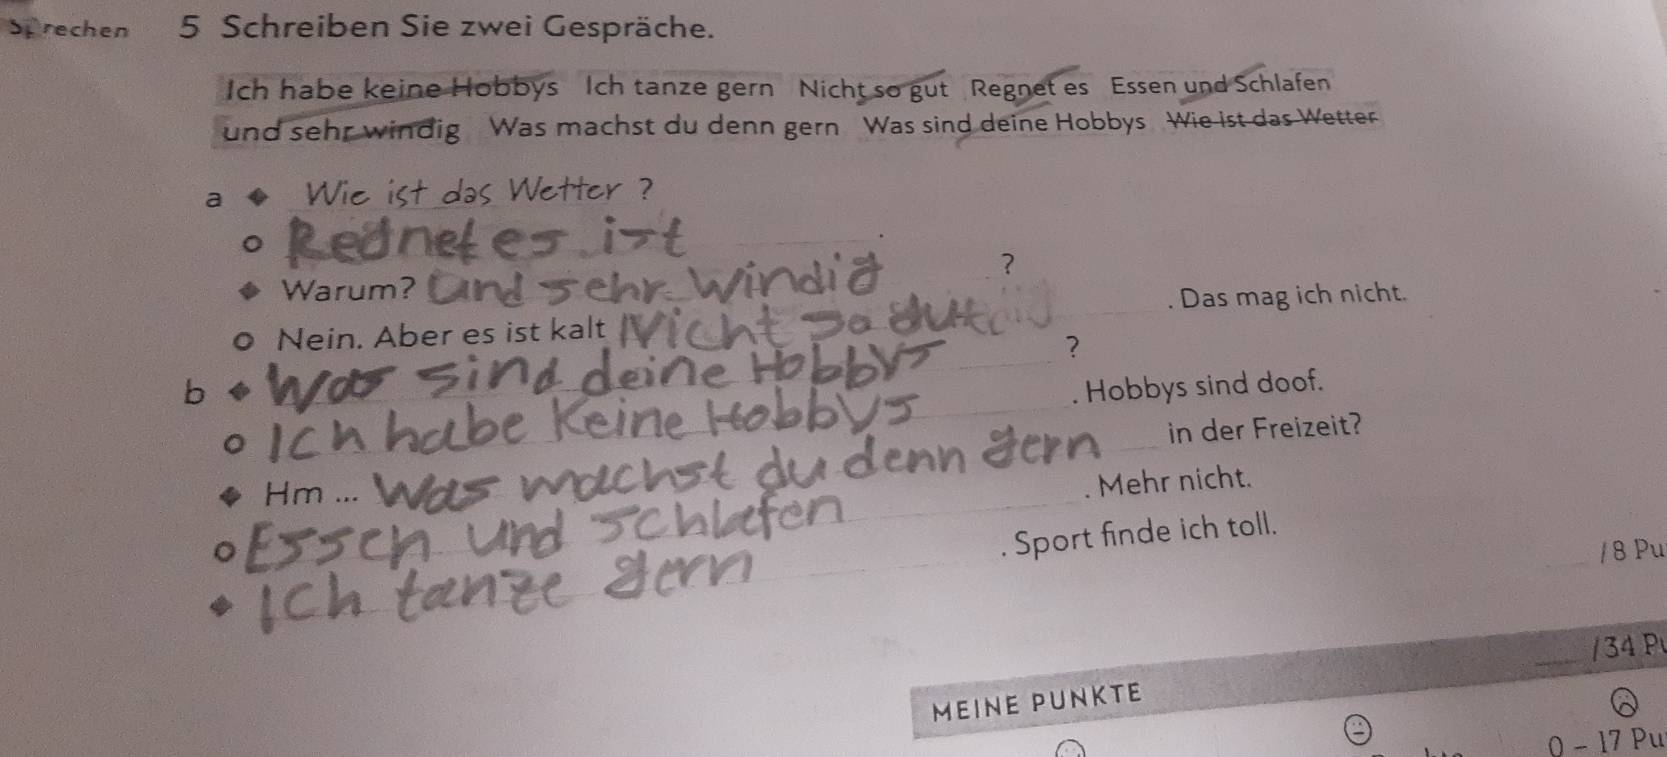 Sprechen 5 Schreiben Sie zwei Gespräche.
Ich habe keine Hobbys Ich tanze gern Nicht so gut Regnet es Essen und Schlafen
und sehr windig Was machst du denn gern Was sind deine Hobbys Wie ist das Wetter
a ◆ Wie ist das Wetter ?
○ Rednet es ist .
◆ Warum? und sehr windig ?
○ Nein. Aber es ist kalt Nicht so gut . Das mag ich nicht.
b ◆ Was sind deine Hobbys ?
○ Ich habe Keine Hobbys . Hobbys sind doof.
◆ Hm ... Was machst du denn gern in der Freizeit?
○ Essen und schlafen . Mehr nicht.
◆ Ich tanze gern . Sport finde ich toll.
/ 8 Pu
/ 34 Pu
MEINE PUNKTE
0 – 17 Pu